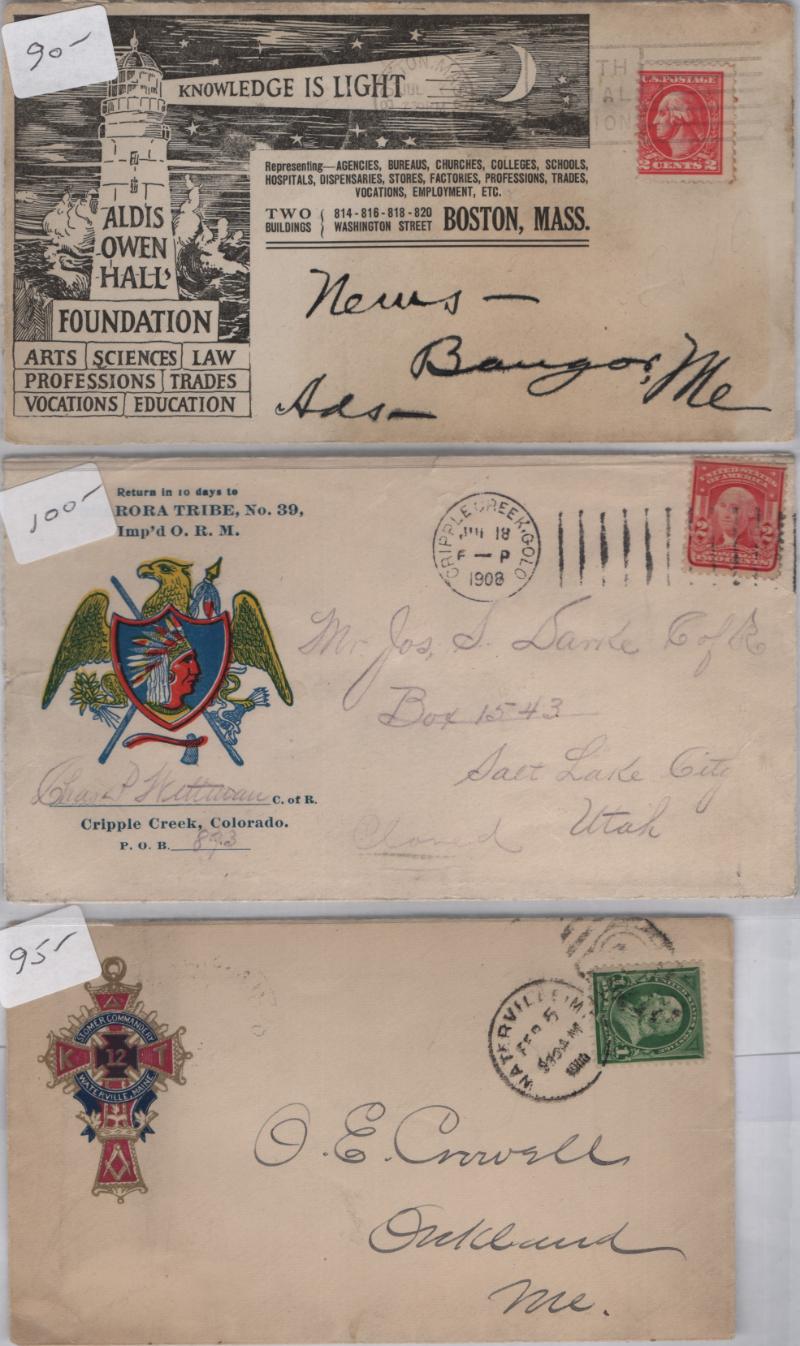 90-
KNOWLEDGE IS LIGHT
U.S. POSTAGE
2 CENTS 2
Representing—AGENCIES, BUREAUS, CHURCHES, COLLEGES, SCHOOLS,
HOSPITALS, DISPENSARIES, STORES, FACTORIES, PROFESSIONS, TRADES,
VOCATIONS, EMPLOYMENT, ETC.
TWO BUILDINGS { 814-816-818-820 WASHINGTON STREET BOSTON, MASS.
ALDIS
OWEN
HALL'S
FOUNDATION
ARTS SCIENCES LAW
PROFESSIONS TRADES
VOCATIONS EDUCATION
News—
Bangor, Me
Ads—
100-
Return in 10 days to
RORA TRIBE, No. 39,
Imp'd O. R. M.
CRIPPLE CREEK, COLO
18
F — P
1908
UNITED STATES
OF AMERICA
2 2
TWO CENTS
Mr. Jos. S. Darke C of R
Box 1543
Salt Lake City
Utah
Chas P Wittman C. of R.
Cripple Creek, Colorado.
P. O. B. 893
95-
COMMANDERY
K 12 T
WATERVILLE, MAINE
WATERVILLE
FEB 5
O. E. Crowell
Oakland
Me.